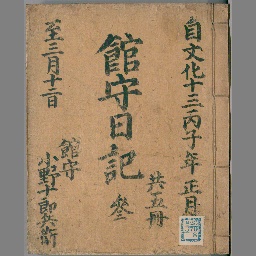 自文化十三丙子年正月
至三月十二日
館守日記
共五冊
参
館守
小野十郎兵衛